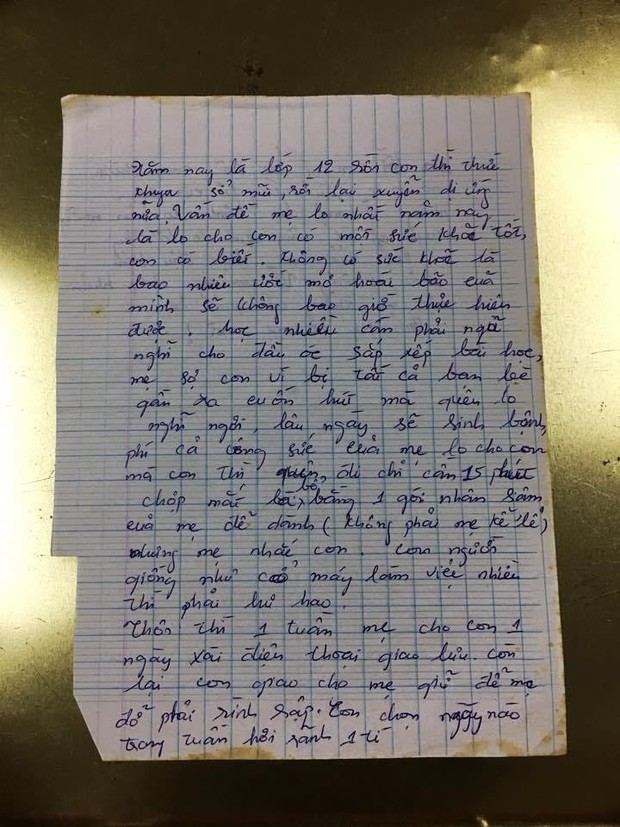 Năm nay là lớp 12 rồi con thì thức
khuya sổ mũi, rồi lại xuyễn dị ứng
nữa. Vấn đề mẹ lo nhất năm nay
là lo cho con có một sức khoẻ tốt,
con có biết. Không có sức khoẻ là
bao nhiêu ước mơ hoài bão của
mình sẽ không bao giờ thực hiện
được. học nhiều cần phải ngủ
nghỉ cho đầu óc sắp xếp bài học,
mẹ sợ con vì bị tất cả bạn bè
gần xa cuốn hút mà quên lo
nghỉ ngơi, lâu ngày sẽ sinh bệnh,
phí cả công sức của mẹ lo cho con
mà con thì quên đi chỉ cần 15 phút
chớp mắt bổ bằng 1 gói nhân sâm
của mẹ để dành (không phải mẹ kể lể)
nhưng mẹ nhắc con. Con người
giống như cổ máy làm việc nhiều
thì phải hư hao.
Thôi thì 1 tuần mẹ cho con 1
ngày xài điện thoại giao lưu. còn
lại con giao cho mẹ giữ để mẹ
đỡ phải rình rập. Con chọn ngày nào
trong tuần hơi rãnh 1 tí